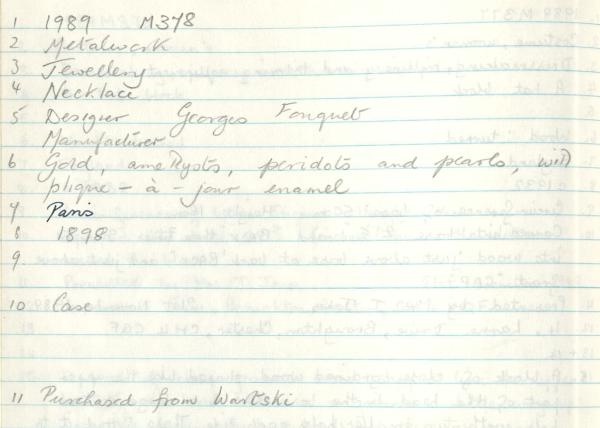 1 1989 M378
2 Metalwork
3 Jewellery
4 Necklace
5 Designer Georges Fouquet
Manufacturer
6 Gold, amethysts, peridots and pearls, with
plique-à-jour enamel
7 Paris
8 1898
9.
10 Case
11 Purchased from Wartski